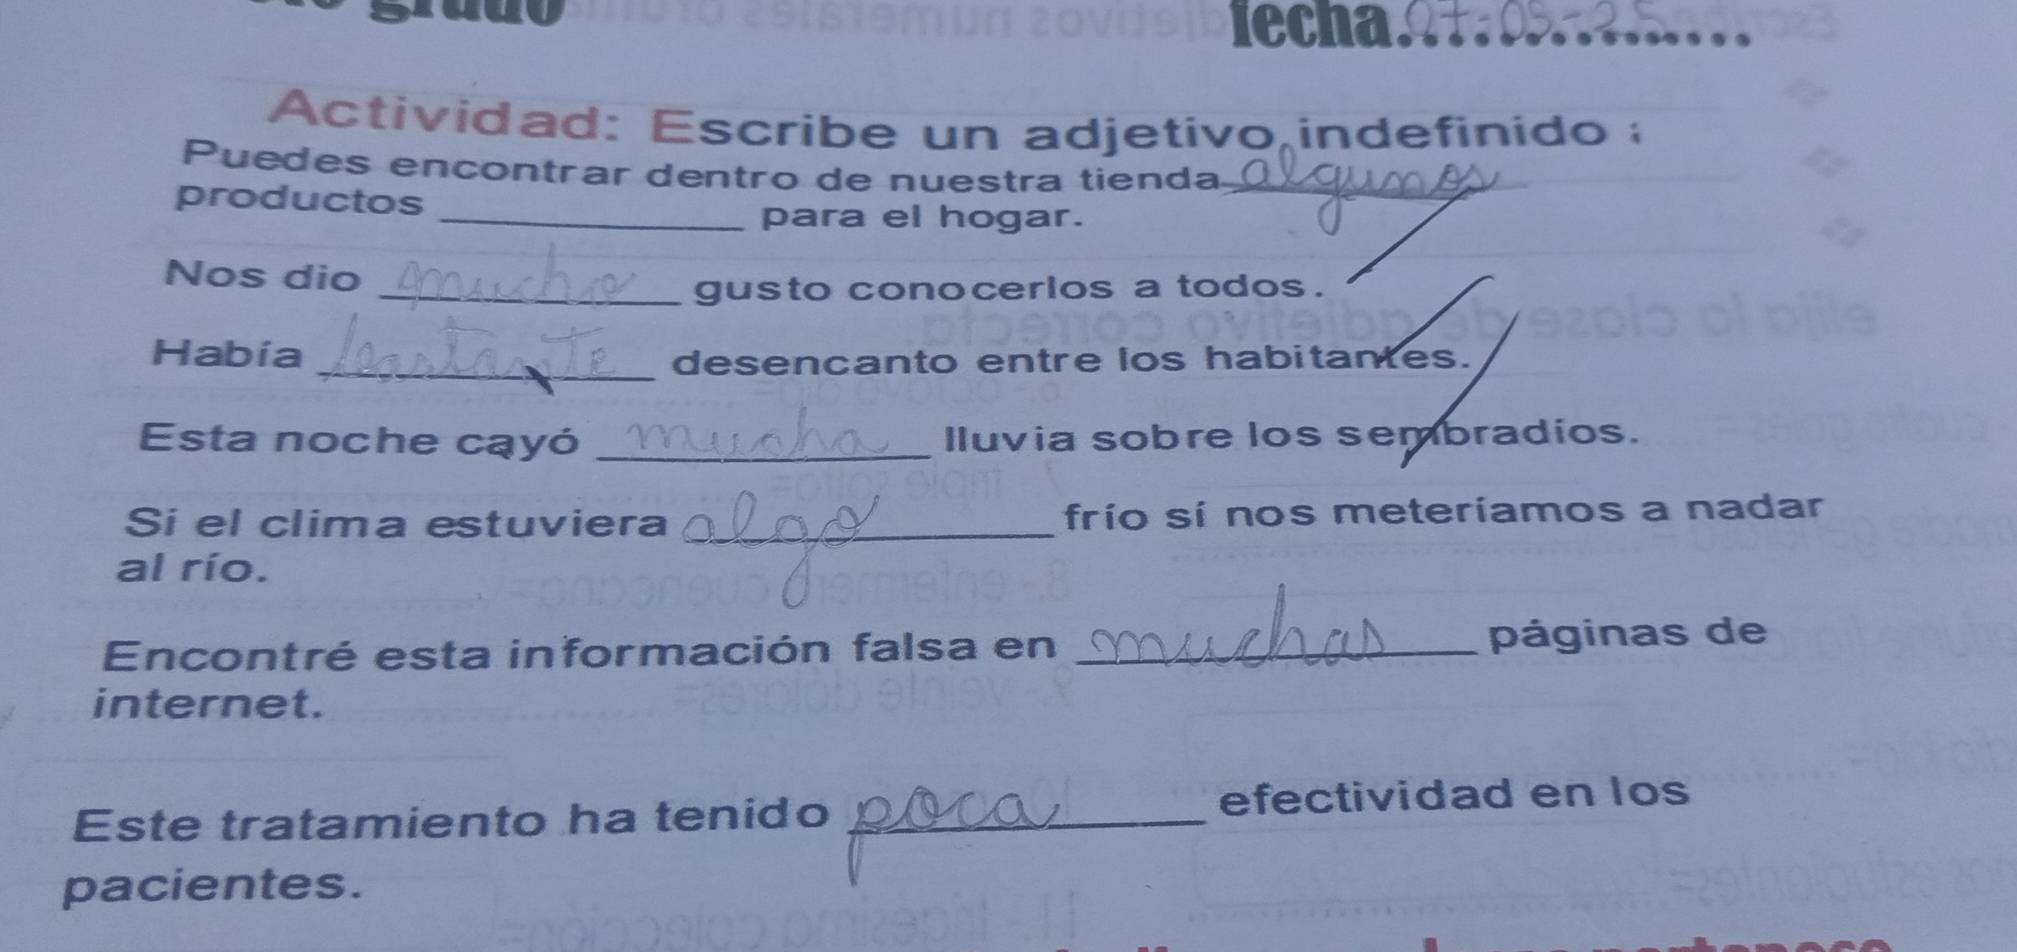 grado fecha..07-05-25......
Actividad: Escribe un adjetivo indefinido :
Puedes encontrar dentro de nuestra tienda algunos
productos ____________ para el hogar.
Nos dio mucho gusto conocerlos a todos.
Había bastante desencanto entre los habitantes.
Esta noche cayó mucha lluvia sobre los sembradíos.
Si el clima estuviera algo frío sí nos meteríamos a nadar
al río.
Encontré esta información falsa en muchas páginas de
internet.
Este tratamiento ha tenido poca efectividad en los
pacientes.